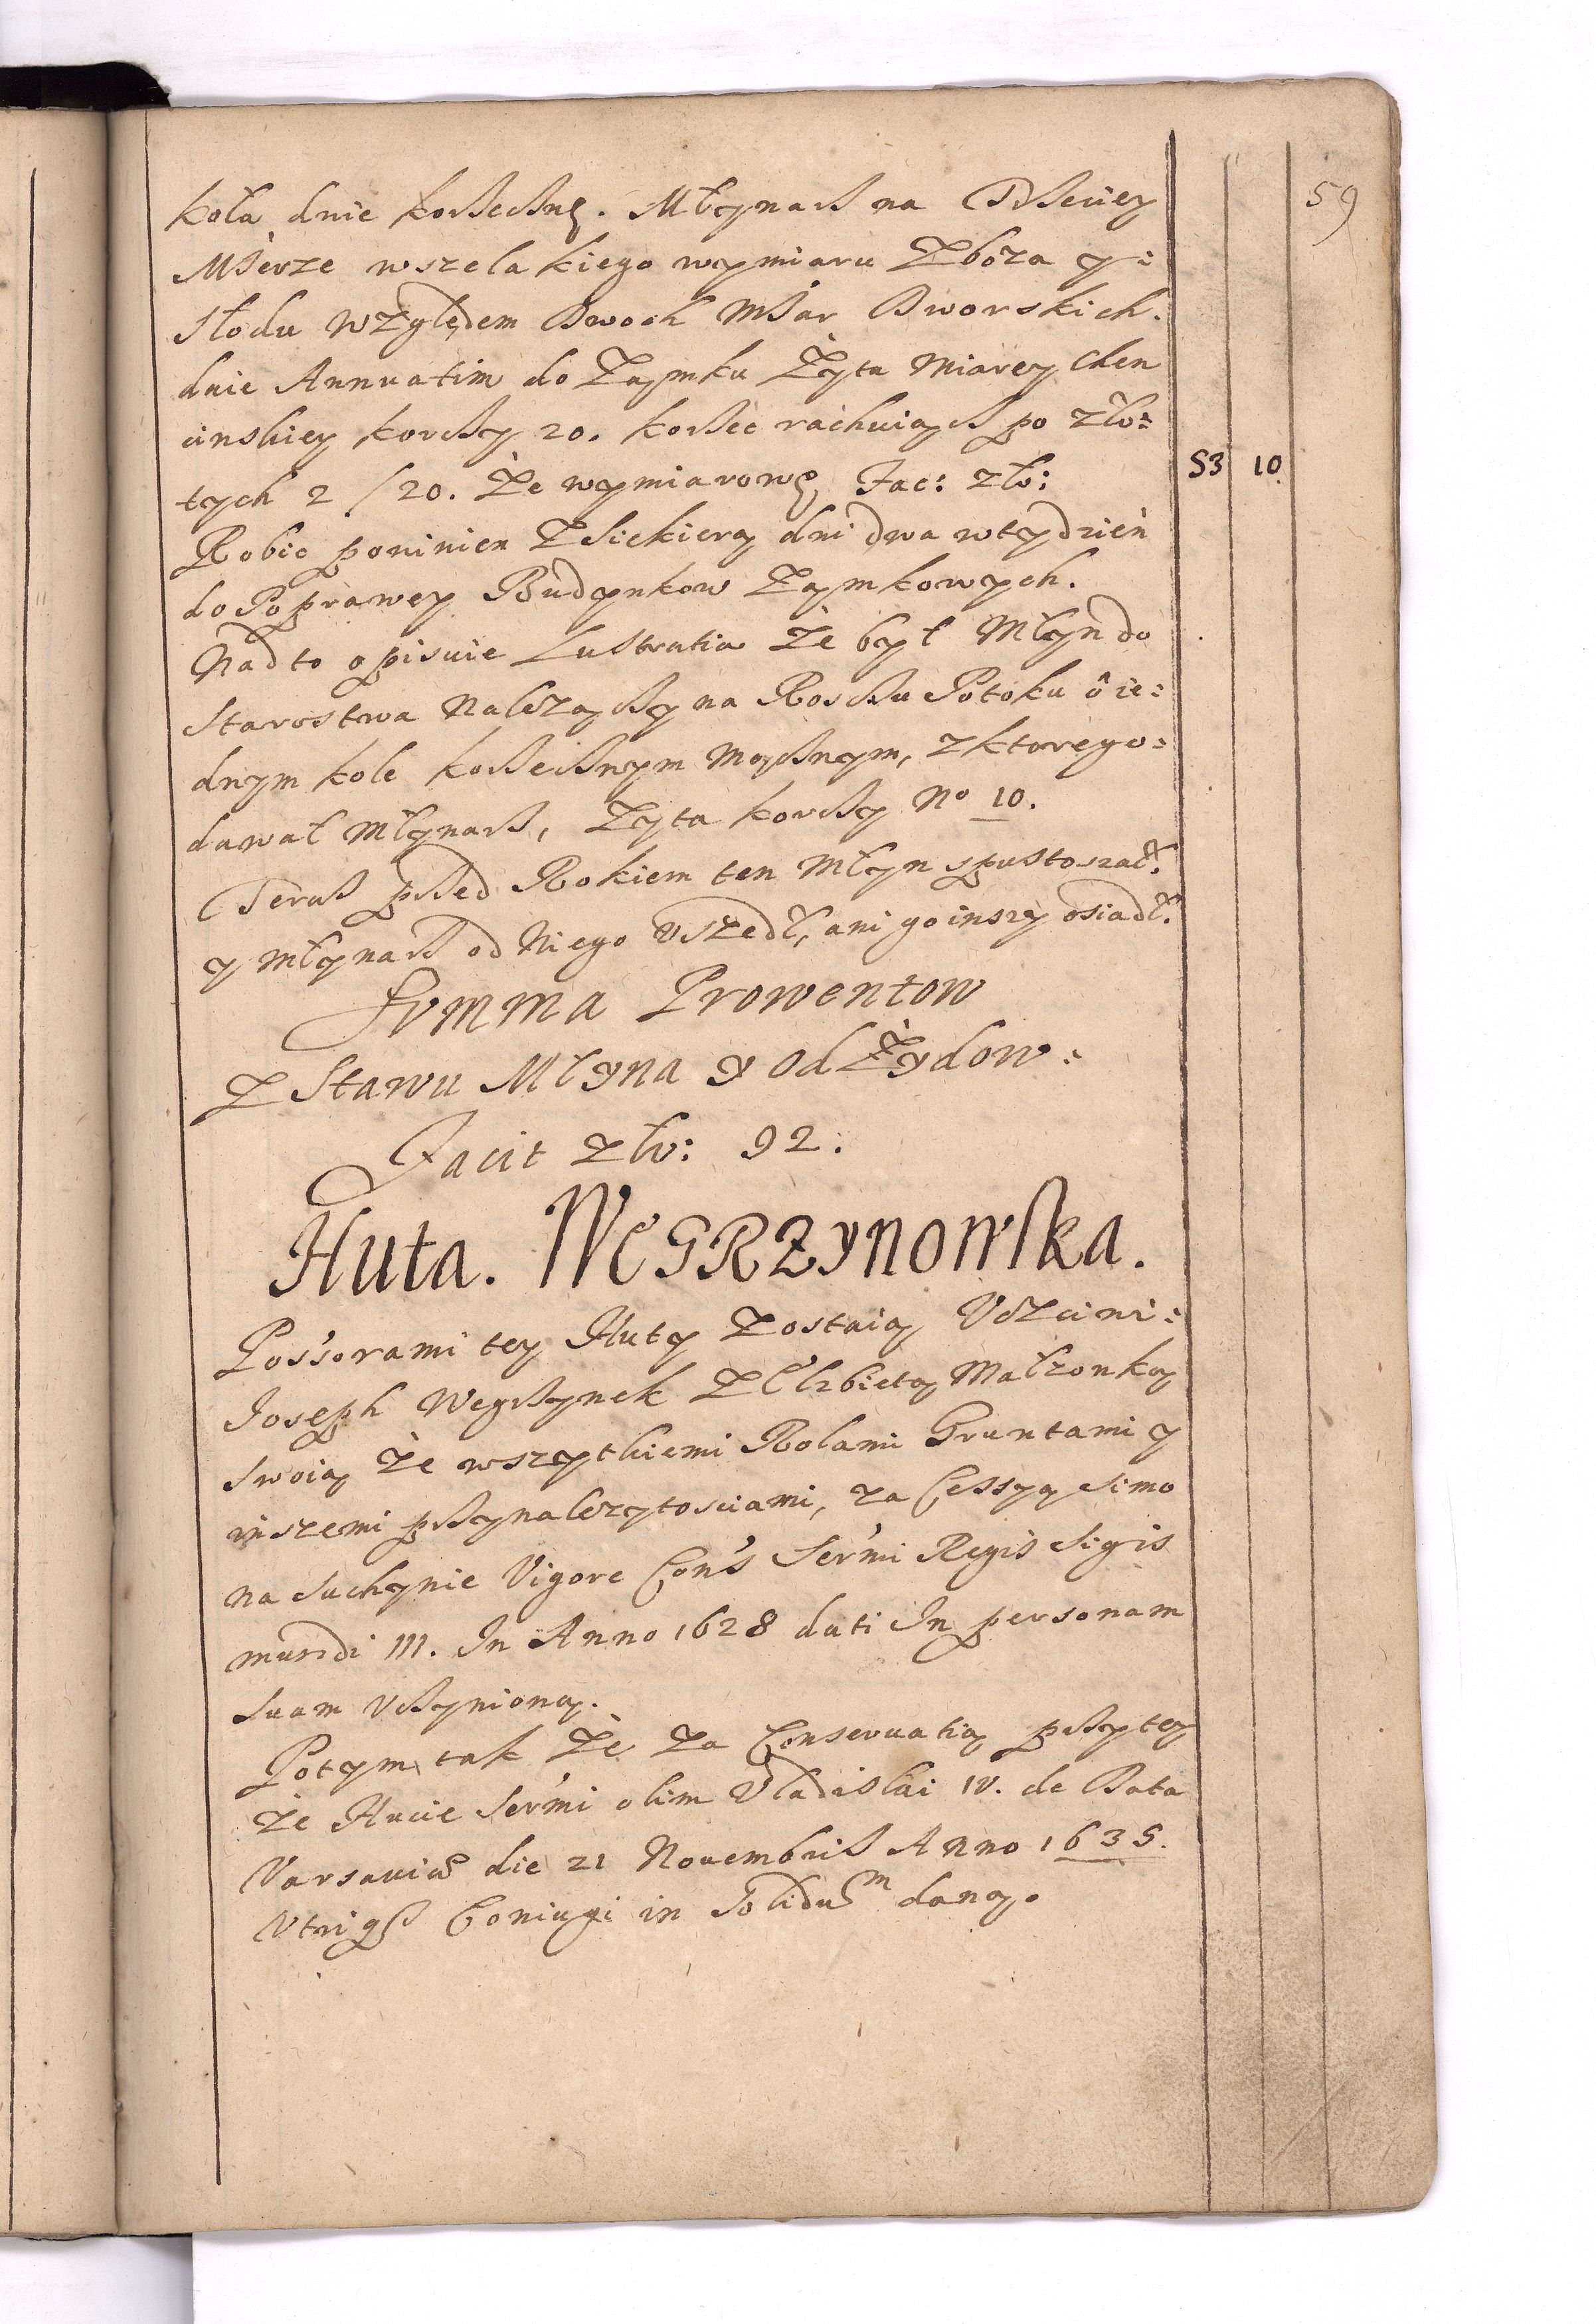 59
koła dnie korzeczne. Młynarz na Trzeciey
Mierze wszelakiego wymiaru Zboza y:
słodu Względem Dwoch Miar Dworskich.
daie Annuatim do Zamku Żyta Miarey Chen
cinskiey korczy 20. korzec rachuiącz po zło:
tych 2/20. Że wymiarowe, Fac: zło: 53 10.
Robic powinien Zsiekierą dni dwa wtydzień
do Poprawey Budynkow Zamkowych.
Nadto opisuie Lustratia Że był Młyn do
Starostwa Należączy na Roszku Potoku ô ie:
dnym kole korzecznym Mącznym, zktorego:
dawał Młynarz, Zyta korczy No 10.
Teraz przed Rokiem ten Młyn spustoszał:
y młynarz od Niego Uszedł, ani go inszy osiadł.
Summa Prowentow
Z Stawu Młyna y Od Żydow:
Facit zło: 92:
Huta. WeGRZynowska.
Possorami tey Huty Zostaią Uczciwi:
Joseph Wegrzynek Z Elzbietą Małzonką
swoią Że wszytkiemi Rolami Gruntami y
inszemi przynalezytosciami, za Cessyą Simo
na Suchynie Vigore Cons Sermi Regis Sigis
mundi III. In Anno 1628 dati In personam
suam Uczynioną.
Potym tak Że Za Conseruatią przy tey
że Hucie Sermi olim Vladislai IV. de Data
Varsauiæ die 21 Nouembris Anno 1635.
Utriqs Coniugi in Solidum daną.